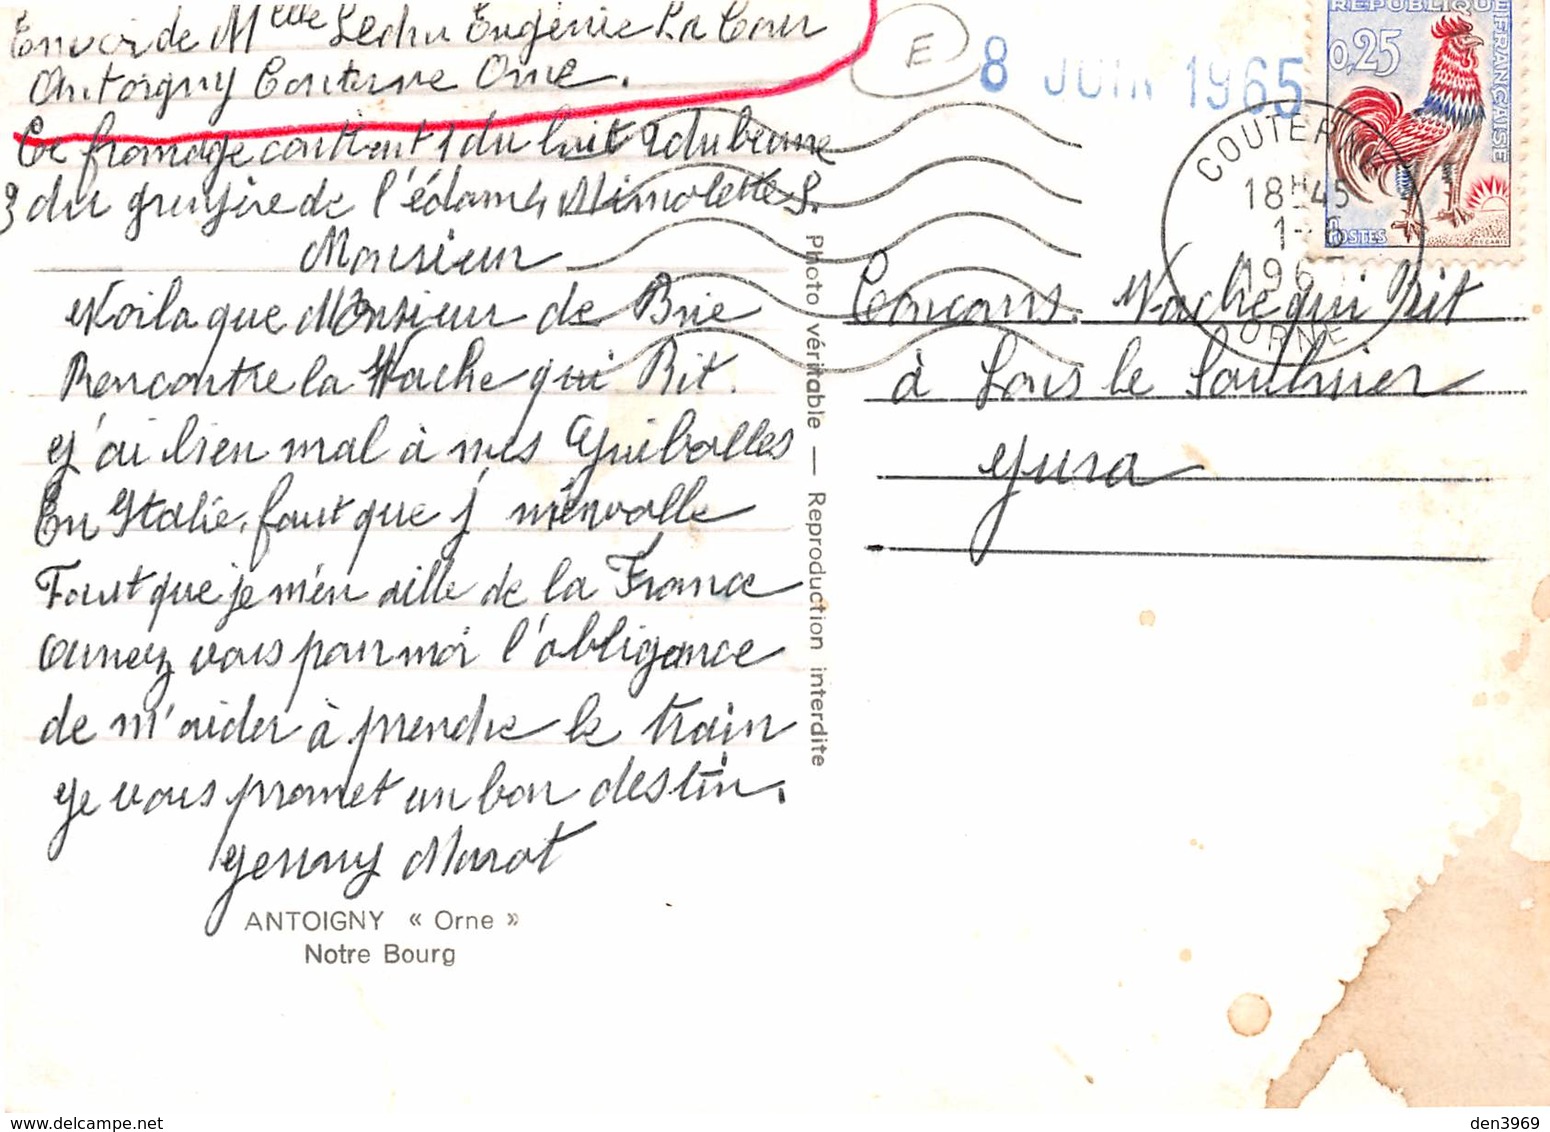 Envoi de Mlle Ledru Eugénie La Cour
Antoigny Couterne Orne.
Ce fromage contient 1 du lait 2 du beurre
3 du gruyère de l'édam 4 Mimolette S.
Monsieur
Voila que Monsieur de Brie
Rencontre la Vache qui Rit.
J'ai bien mal à mes Guibolles
En Italie, faut que j' m'envolle
Faut que je m'en aille de la France
auriez vous pour moi l'obligance
de m'aider à prendre le train
Je vous promet un bon destin.
Jenny Marot
ANTOIGNY « Orne »
Notre Bourg
Photo véritable — Reproduction interdite
E
8 JUIN 1965
RÉPUBLIQUE FRANÇAISE
0,25
POSTES
COUTERNE
18H45
1-6
196
ORNE
Concours. Vache qui Rit
à Lons le Saulnier
Jura
den3969